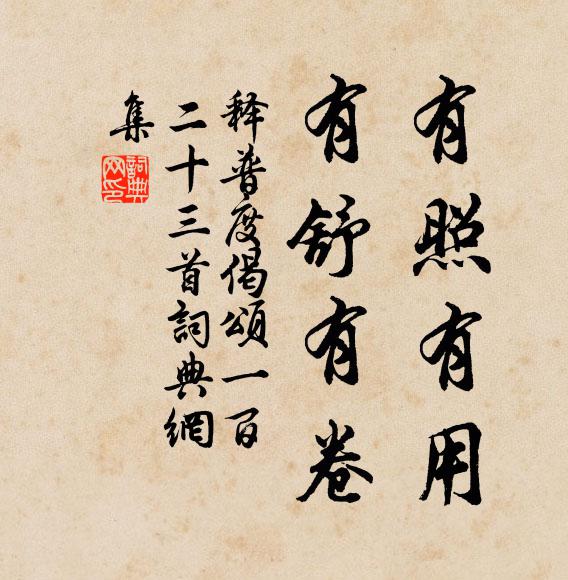 有照有用
有舒有卷
释普度偈頌一百
二十三首詞典網
集
詞典
网印